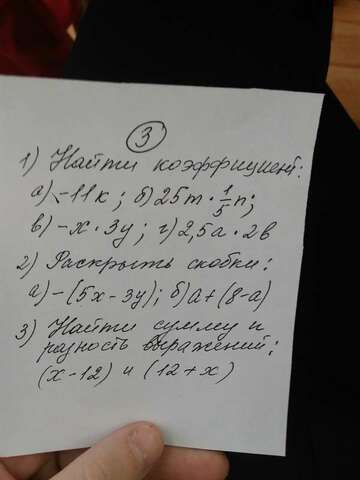 3
1) Найти коэффициент:
а) -11к; б) 25m · 1/5 n;
в) -x · 3y; г) 2,5a · 2в
2) Раскрыть скобки:
а) -(5x - 3y); б) a + (8 - a)
3) Найти сумму и
разность выражений:
(x - 12) и (12 + x)